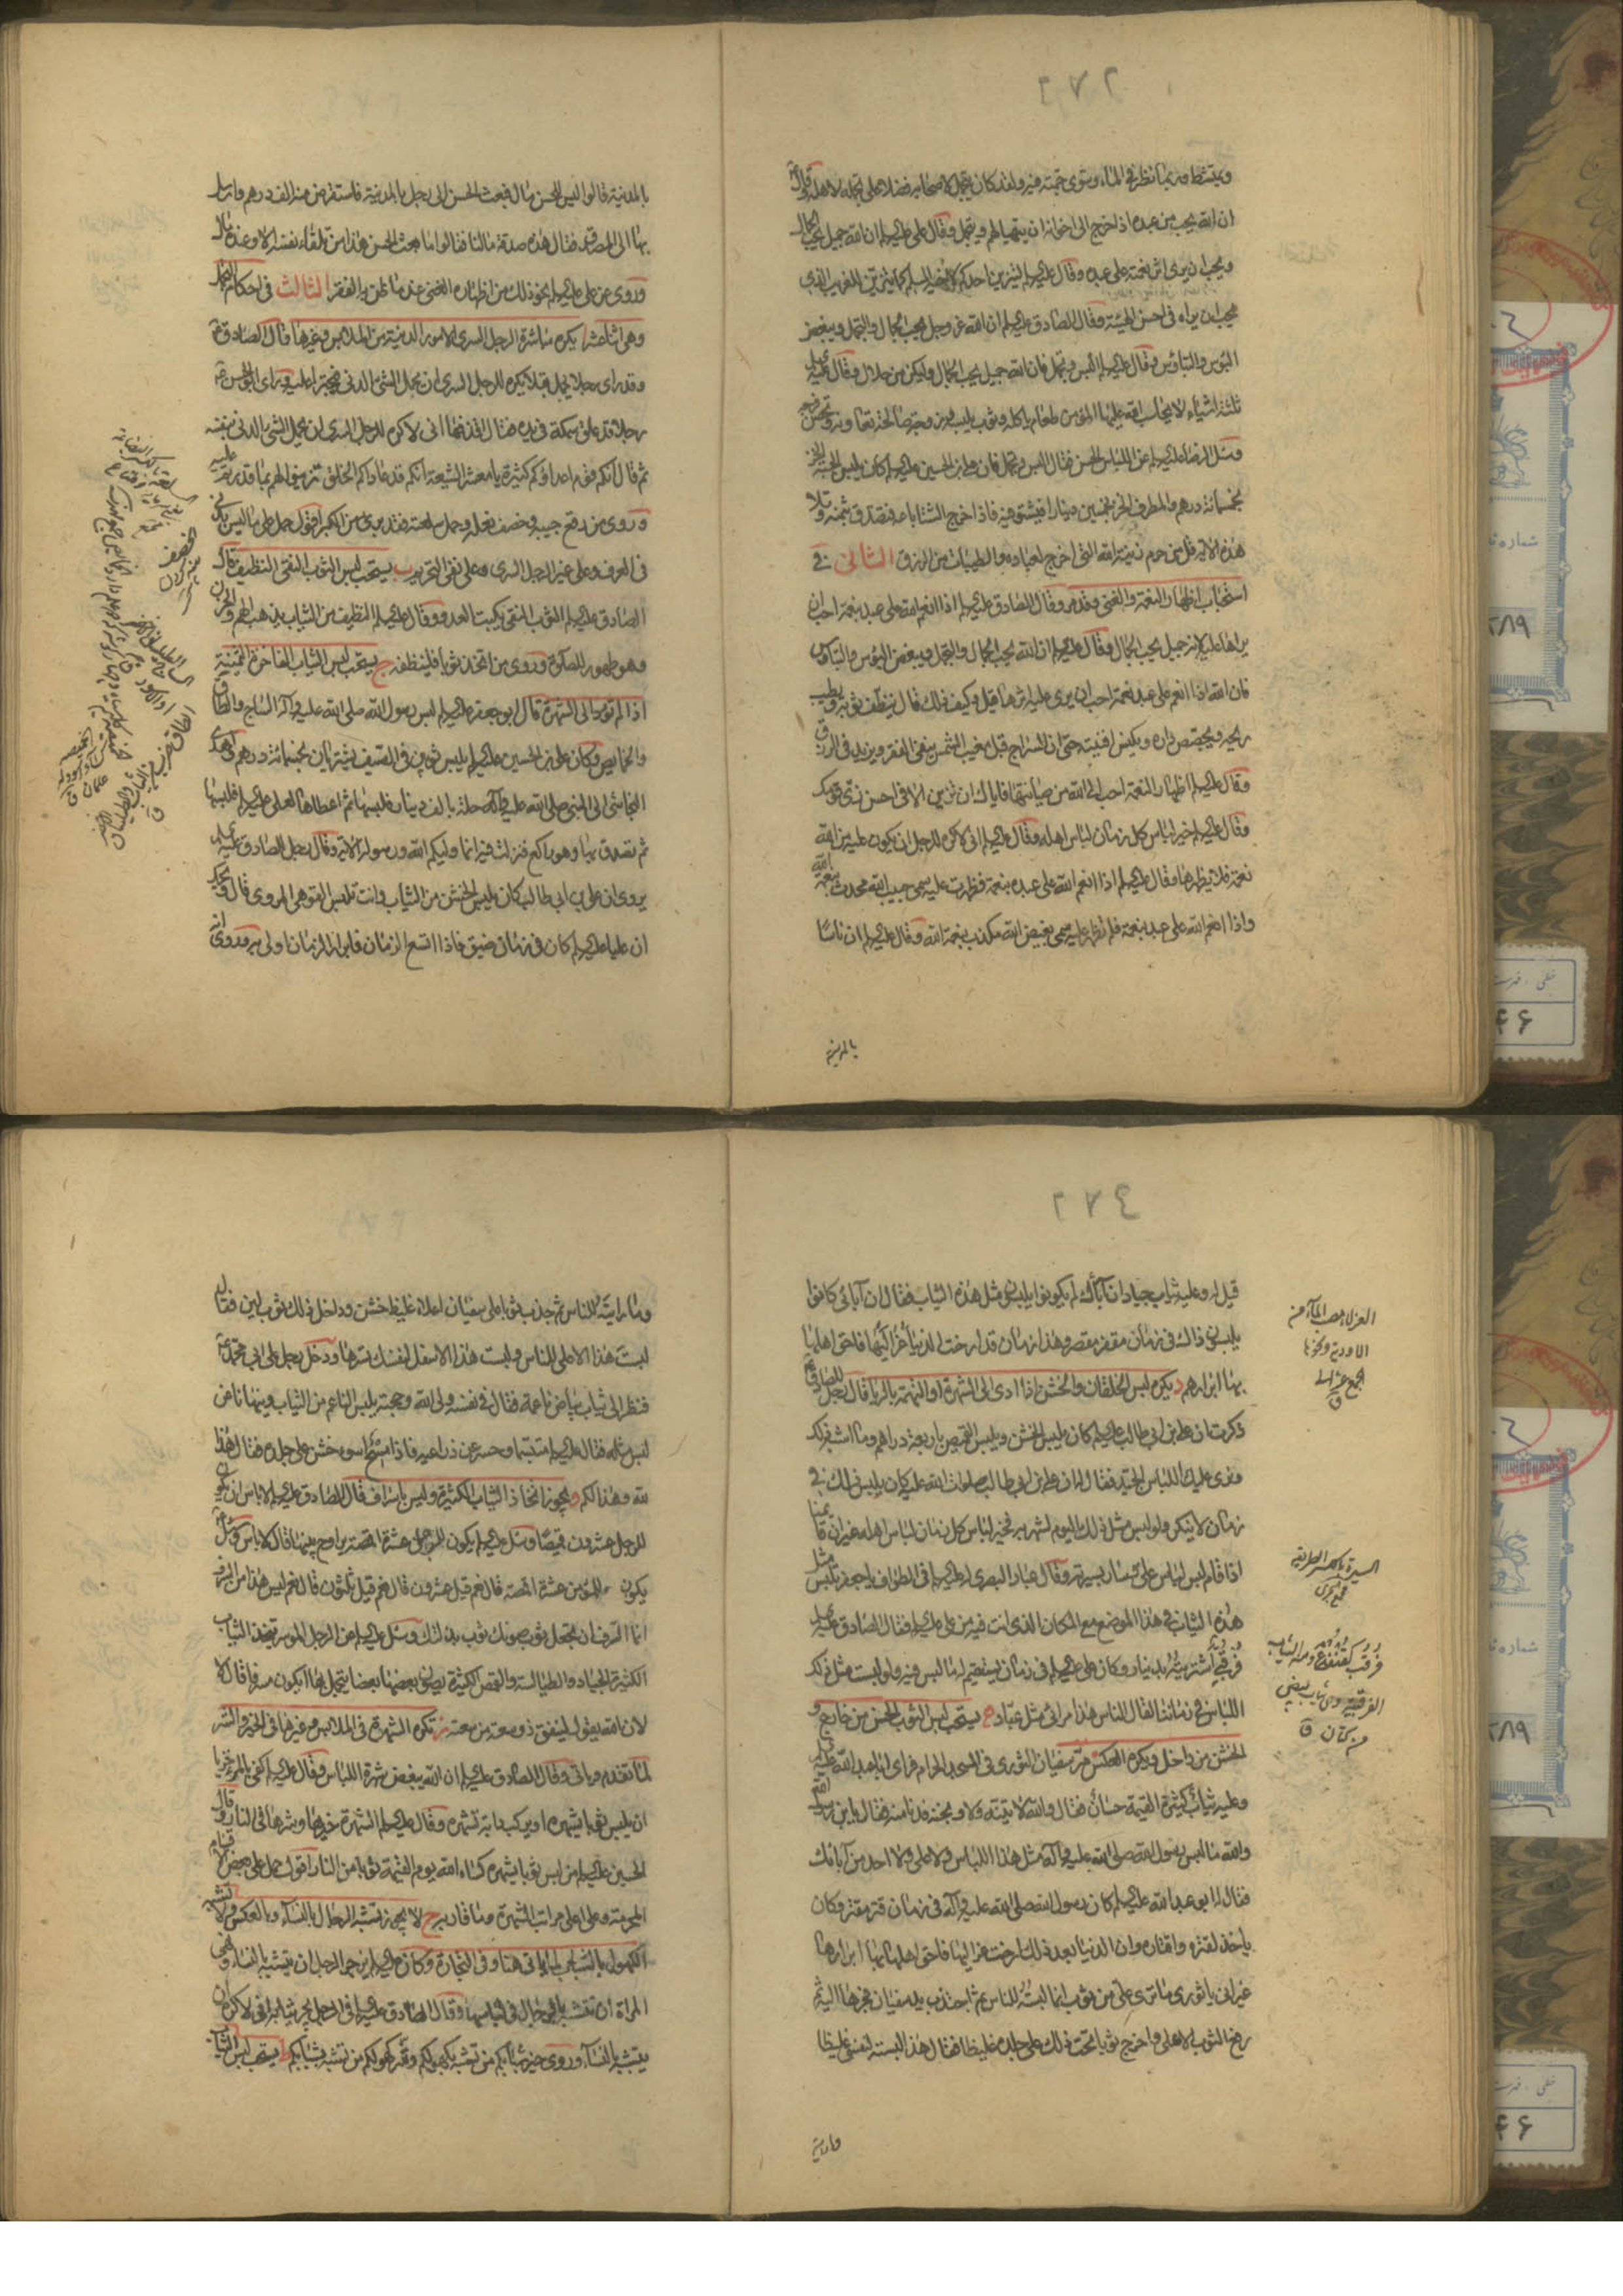 ويتشط وربما نظر في الماء وسوى جمته فيه ولقد كان يتجمل لاصحابه فضلا على تجمله لاهله وقال
ان الله يحب من عبده اذا خرج الى اخوانه ان يتهيأ لهم ويتجمل وقال على عليه السلم ان الله جميل يحب الجمال
ويحب ان يرى اثر نعمته على عبده وقال عليه السلم ليتزين احدكم لاخيه المسلم كما يتزين للغريب الذي
يحب ان يراه في احسن الهيئة وقال الصادق عليه السلم ان الله عز وجل يحب الجمال والتجمل ويبغض
البؤس والتباؤس وقال عليه السلم البس وتجمل فان الله جميل يحب الجمال وليكن من حلال وقال عليه السلم
ثلثة اشياء لا يحاسب الله عليها المؤمن طعام ياكله وثوب يلبسه وزوجة صالحة تعاونه وتحصن فرجه
وسئل الرضا عليه السلم عن اللباس الحسن فقال البس وتجمل فان علي بن الحسين عليه السلم كان يلبس الجبة الخز
بخمسمائة درهم والمطرف الخز بخمسين دينارا فيشتو فيه فاذا خرج الشتا باعه فتصدق بثمنه وتلا
هذه الاية قل من حرم زينة الله التي اخرج لعباده والطيبات من الرزق الثاني في
استحباب اظهار النعمة والغنى وقد مر وقال الصادق عليه السلم اذا انعم الله على عبد بنعمة احب ان
يراها عليه لانه جميل يحب الجمال وقال عليه السلم ان الله يحب الجمال والتجمل ويبغض البؤس والتباؤس
فان الله اذا انعم على عبد نعمة احب ان يرى عليه اثرها قيل وكيف ذلك قال ينظف ثوبه ويطيب
ريحه ويجصص داره ويكنس افنيته حتى ان السراج قبل مغيب الشمس ينفي الفقر ويزيد في الرزق
وقال عليه السلم اظهار النعمة احب الى الله من صيانتها فاياك ان تزين الا في احسن زي قومك
وقال عليه السلم خير لباس كل زمان لباس اهله وقال عليه السلم اني لاكره للرجل ان يكون عليه من الله
نعمة فلا يظهرها وقال عليه السلم اذا انعم الله على عبده بنعمة فظهرت عليه سمى حبيب الله محدث بنعمة الله
واذا انعم الله على عبد بنعمة فلم تظهر عليه سمى بغيض الله مكذب بنعمة الله وقال عليه السلم ان ناسا
بالمدينة
بالمدينة قالوا ليس للحسن مال فبعث الحسن الى رجل بالمدينة فاستقرض منه الف درهم وارسل
بها الى المصدق فقال هذه صدقة مالنا فقالوا ما بعث الحسن هذا من تلقاء نفسه الا وعنده مال
وروى عن علي عليه السلم نحو ذلك من اظهاره الغنى عند ما ظن به الفقر الثالث في احكام التجمل
وهي اثنا عشر ا يكره مباشرة الرجل السري الامور الدنية من الملابس وغيرها قال الصادق ع
وقد راى رجلا يحمل بقلا يكره للرجل السري ان يحمل الشئ الدني فيجترا عليه وراى ابو الحسن ع
رجلا قد علق سمكة في يده فقال اقذفها اني لاكره للرجل السري ان يحمل الشئ الدني بنفسه
ثم قال انكم قوم اعداؤكم كثيرة يا معشر الشيعة انكم قد عاداكم الخلق فتزينوا لهم بما قدرتم عليه
وروى من رقع جيبه وخصف نعله وحمل سلعته فقد برئ من الكبر اقول حمل على ما ليس بدني
في العرف وعلى غير الرجل السري وعلى نفي التحريم ب يستحب لبس الثوب النقي النظيف قال
الصادق عليه السلم الثوب النقي يكبت العدو وقال عليه السلم النظيف من الثياب يذهب الهم والحزن
وهو طهور للصلوة وروى من اتخذ ثوبا فلينظفه ج يستحب لبس الثياب الفاخرة الثمينة
اذا لم تؤد الى الشهرة قال ابو جعفر عليه السلم لبس رسول الله صلى الله عليه وآله الساج والطاق
والخمايص وكان علي بن الحسين عليه السلم يلبس ثوبين في الصيف يشتريان بخمسمائة درهم واهدى
النجاشي الى النبي صلى الله عليه وآله حلة بالف دينار فلبسها ثم اعطاها لعلي عليه السلم فلبسها
ثم تصدق بها وهو راكع فنزلت فيه انما وليكم الله ورسوله الاية وقال رجل للصادق عليه السلم
يروى ان علي بن ابي طالب كان يلبس الخشن من الثياب وانت تلبس القوهي المروي قال ويحك
ان عليا عليه السلم كان في زمان ضيق فاذا اتسع الزمان فابرار الزمان اولى به وروى انه
خصف
قيل له وعليه ثياب جياد ان آباءك لم يكونوا يلبسون مثل هذه الثياب فقال ان آبائي كانوا
يلبسون ذاك في زمان مقفر مقصر وهذا زمان قد ارخت الدنيا عزاليها فاحق اهلها
بها ابرارهم د يكره لبس الخلقان والخشن اذا ادى الى الشهرة او التهمة بالريا قال رجل للصادق ع
ذكرت ان علي بن ابي طالب عليه السلم كان يلبس الخشن ويلبس القميص باربعة دراهم وما اشبه ذلك
ونرى عليك اللباس الجيد فقال له ان علي بن ابي طالب صلوات الله عليه كان يلبس ذلك في
زمان لا ينكر ولو لبس مثل ذلك اليوم لشهر به فخير لباس كل زمان لباس اهله غير ان قائمنا
اذا قام لبس لباس علي وسار بسيرته وقال عباد البصري له عليه السلم في الطواف يا جعفر تلبس مثل
هذه الثياب في هذا الموضع مع المكان الذي انت فيه من علي عليه السلم فقال الصادق عليه السلم
فرقبي اشتريته بدينار وكان علي عليه السلم في زمان يستقيم له ما لبس فيه ولو لبست مثل ذلك
اللباس في زماننا لقال الناس هذا مرائي مثل عباد ه يستحب لبس الثوب الحسن من خارج و
الخشن من داخل ويكره العكس مر سفيان الثوري في المسجد الحرام فراى ابا عبد الله عليه السلم
وعليه ثياب كثيرة القيمة حسان فقال والله لاتينه ولاوبخنه فدنا منه فقال يا بن رسول الله
والله ما لبس رسول الله صلى الله عليه وآله مثل هذا اللباس ولا علي ولا احد من آبائك
فقال له ابو عبد الله عليه السلم كان رسول الله صلى الله عليه وآله في زمان قتر مقتر وكان
ياخذ لقتره واقتاره وان الدنيا بعد ذلك ارخت عزاليها فاحق اهلها بها ابرارها
غير اني يا ثوري ما ترى علي من ثوب انما لبسته للناس ثم اجتذب يد سفيان فجرها اليه ثم
رفع الثوب الاعلى واخرج ثوبا تحت ذلك على جلده غليظا فقال هذا البسته لنفسي غليظا
ومارايته
العزلاء مصب الماء من
الاودية ونحوها
ج عزالى
ق
السيرة بالكسر الطريقة
فرقب كقنفذ ع ومنه الثياب
الفرقبية وهي ثياب بيض
من كتان ق
وما رايته للناس ثم جذب ثوبا على سفيان اعلاه غليظ خشن وداخل ذلك ثوب لين فقال
لبست هذا الاعلى للناس ولبست هذا الاسفل لنفسك تسرها ودخل رجل على ابي محمد ع
فنظر الى ثياب بياض ناعمة فقال في نفسه ولي الله وحجته يلبس الناعم من الثياب وينهانا عن
لبس مثله فقال عليه السلم متبسما وحسر عن ذراعيه فاذا مسح اسود خشن على جلده فقال هذا
لله وهذا لكم و يجوز اتخاذ الثياب الكثيرة وليس باسراف قال الصادق عليه السلم لا باس ان يكون
للرجل عشرون قميصا وسئل عليه السلم يكون للرجل عشرة اقمصة يراوح بينها قال لا باس وسئل
يكون للمؤمن عشرة اقمصة قال نعم قيل عشرون قال نعم قيل ثلثون قال نعم ليس هذا من السرف
انما السرف ان تجعل ثوب صونك ثوب بذلتك وسئل عليه السلم عن الرجل الموسر يتخذ الثياب
الكثيرة الجياد والطيالسة والقمص الكثيرة يصون بعضها بعضا يتجمل بها ايكون مسرفا قال لا
لان الله يقول لينفق ذو سعة من سعته ز تكره الشهرة في الملابس وغيرها في الخير والشر
لما تقدم وياتي وقال الصادق عليه السلم ان الله يبغض شهرة اللباس وقال عليه السلم كفى بالمرء خزيا
ان يلبس ثوبا يشهره او يركب دابة تشهره وقال عليه السلم الشهرة خيرها وشرها في النار وقال
الحسين عليه السلم من لبس ثوبا يشهره كساه الله يوم القيمة ثوبا من النار اقول حمل على بعض اقسام
المحرمة وعلى اعلى مراتب الشهرة وما قاربه ح لا يجوز تشبه الرجال بالنساء وبالعكس ولا تشبه
الكهول بالشباب لما ياتي هنا وفي التجارة وكان عليه السلم يزجر الرجل ان يتشبه بالنساء وينهى
المراة ان تتشبه بالرجال في لباسها وقال الصادق عليه السلم في الرجل يجر ثيابه اني لاكره ان
يتشبه بالنساء وروى خير شبابكم من تشبه بكهولكم وشر كهولكم من تشبه بشبابكم ط يستحب لبس الثياب
شماره
خطی . فهرست
٤٦
٢٨٩